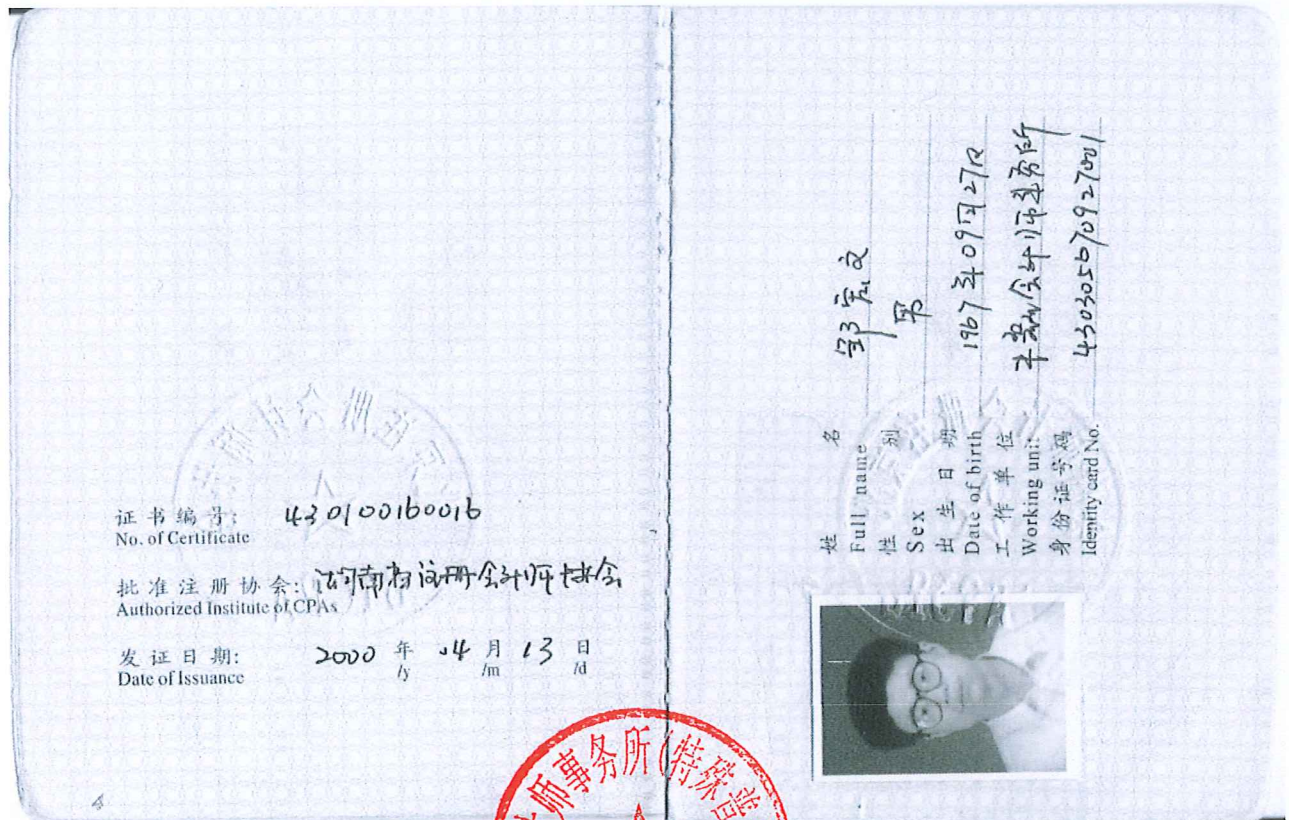 证书编号: 430100160016
No. of Certificate
批准注册协会: 湖南省注册会计师协会
Authorized Institute of CPAs
发证日期: 2000 年 04 月 13 日
Date of Issuance /y /m /d
4
姓名 邹宏文
Full name
性别 男
Sex
出生日期 1967年09月27日
Date of birth
工作单位 会计师事务所
Working unit
身份证号码
Identity card No.
师事务所(特殊普